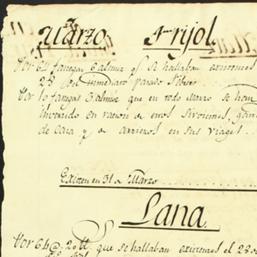 Marzo Frijol
Por 62 fanegas 6 almus qe se hallaban existentes
28 del inmediato pasado Febrero
Por 10 fanegas 3 almus que en todo Marzo se han
invertido en racion de enos sirvientes
de Casa y a arrieros en sus viages
Existen en 31 de Marzo
Lana
Por 64 @ 20 tt que se hallaban existentes el 28 de